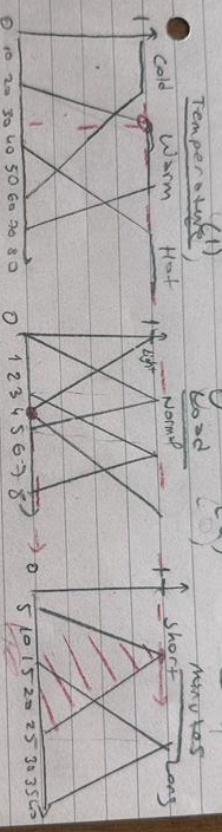 Temperature (1)
1
Cold Warm Hot
0 10 20 30 40 50 60 70 80
Load
1
Light Normal
0 1 2 3 4 5 6 7 8
minutes
1
Short Long
0 5 10 15 20 25 30 35